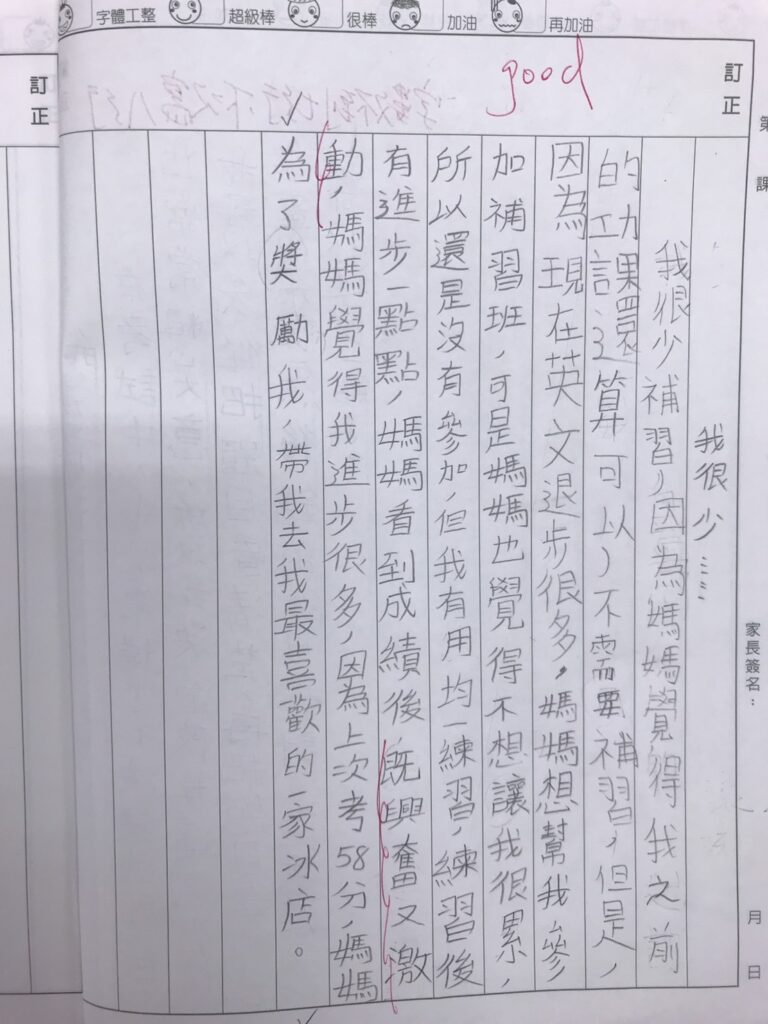 字體工整 超級棒 很棒 加油 再加油
訂正
good
第
課
家長簽名：
月
日
我很少……
我很少補習，因為媽媽覺得我之前
的功課還算可以，不需要補習，但是，
因為現在英文退步很多，媽媽想幫我參
加補習班，可是媽媽也覺得不想讓我很累，
所以還是沒有參加，但我有用均一練習，練習後
有進步一點點，媽媽看到成績後，既興奮又激
動，媽媽覺得我進步很多，因為上次考58分，媽媽
為了獎勵我，帶我去我最喜歡的一家冰店。
訂正